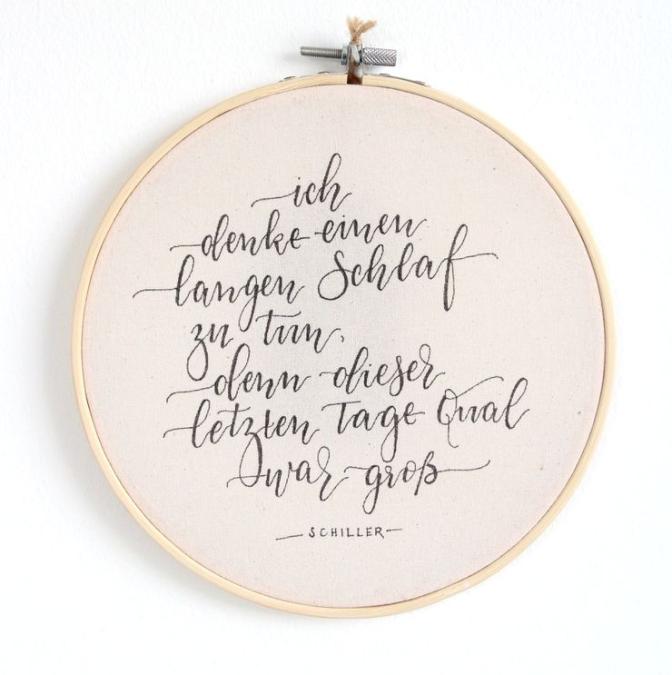 ich
denke einen
langen Schlaf
zu tun,
denn dieser
letzten Tage Qual
war groß
— SCHILLER —